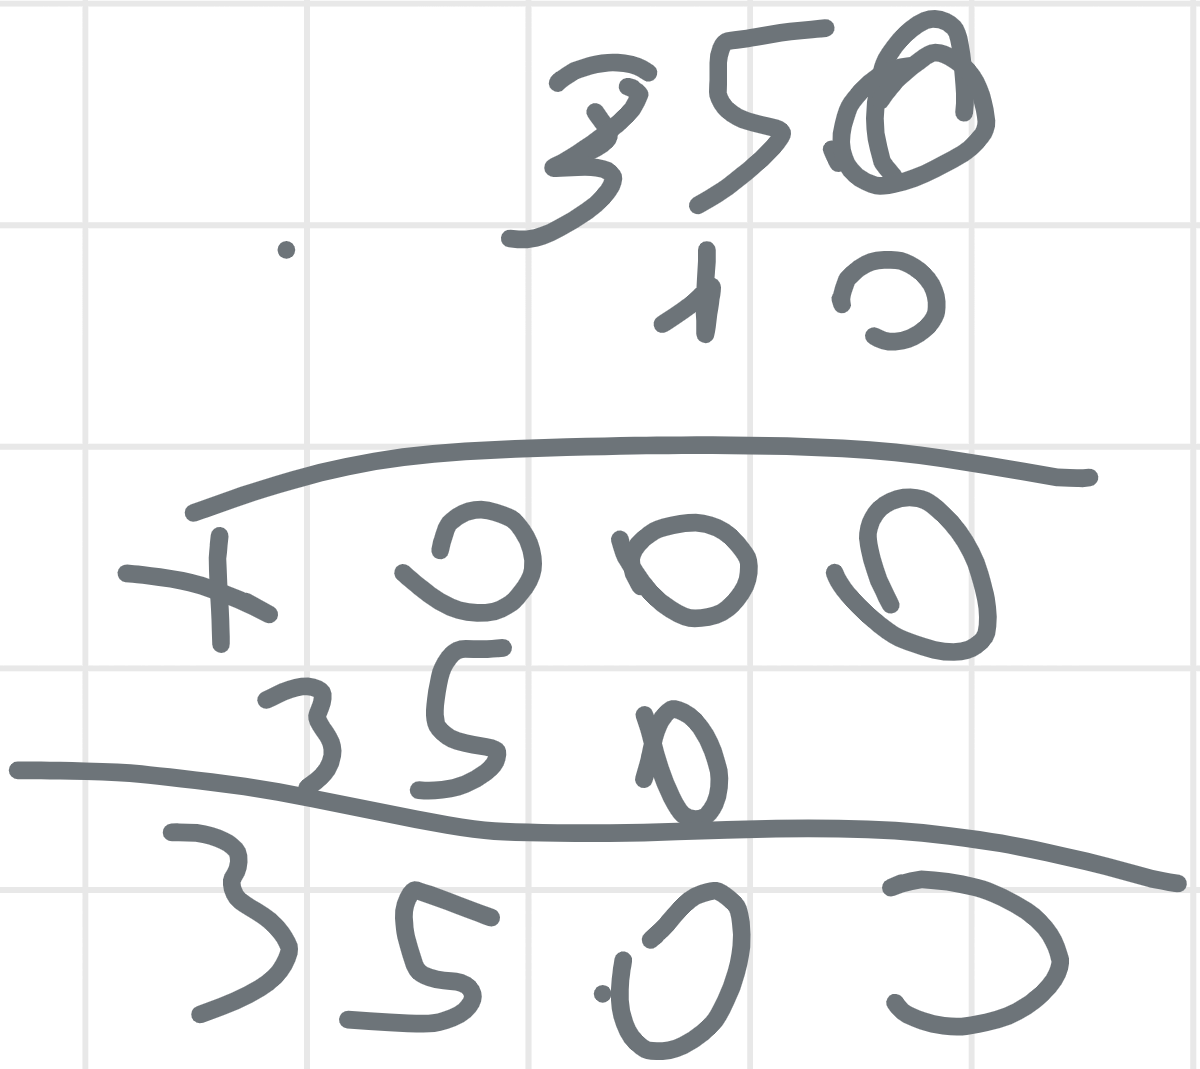 350
10
+ 000
350
3500